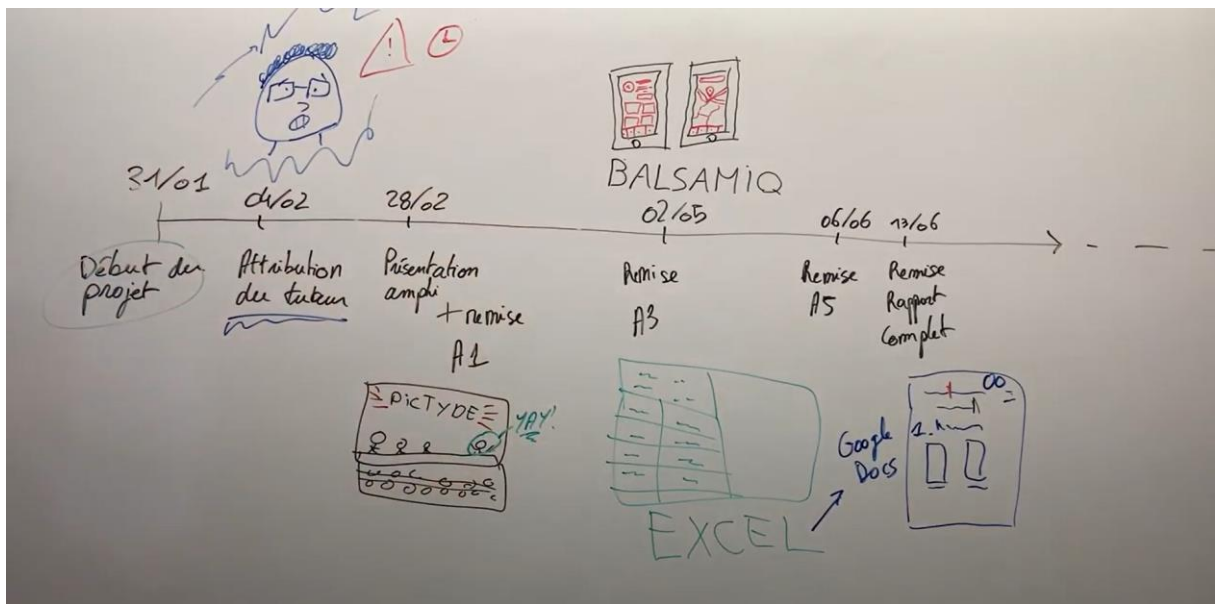 BALSAMIQ
31/01
04/02
28/02
02/05
06/06
13/06
Début du
projet
Attribution
du tuteur
Présentation
amphi
+ remise
A1
Remise
A3
Remise
A5
Remise
Rapport
Complet
PICTYPE
YAY!
EXCEL
Google
Docs
1.